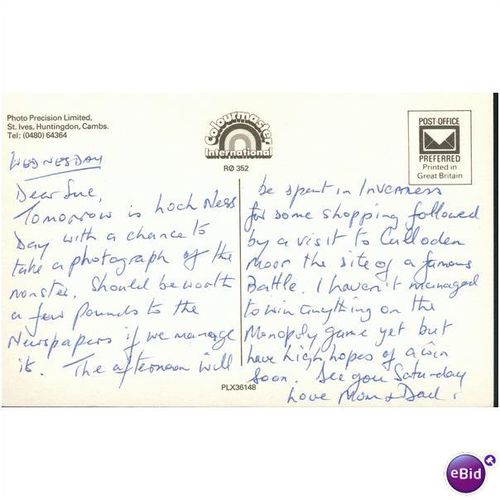 Photo Precision Limited,
St. Ives, Huntingdon, Cambs.
Tel: (0480) 64364
Colourmaster
International
RØ 352
POST OFFICE
PREFERRED
Printed in
Great Britain
WEDNESDAY
Dear Sue,
Tomorrow is Loch Ness
Day with a chance to
take a photograph of the
monster. Should be worth
a few pounds to the
Newspapers if we manage
it. The afternoon will
be spent in Inverness
for some shopping followed
by a visit to Culloden
Moor the site of a famous
Battle. I haven't managed
to win anything on the
Monopoly game yet but
have high hopes of a win
soon. See you Saturday
Love Mom & Dad.
PLX36148
eBid